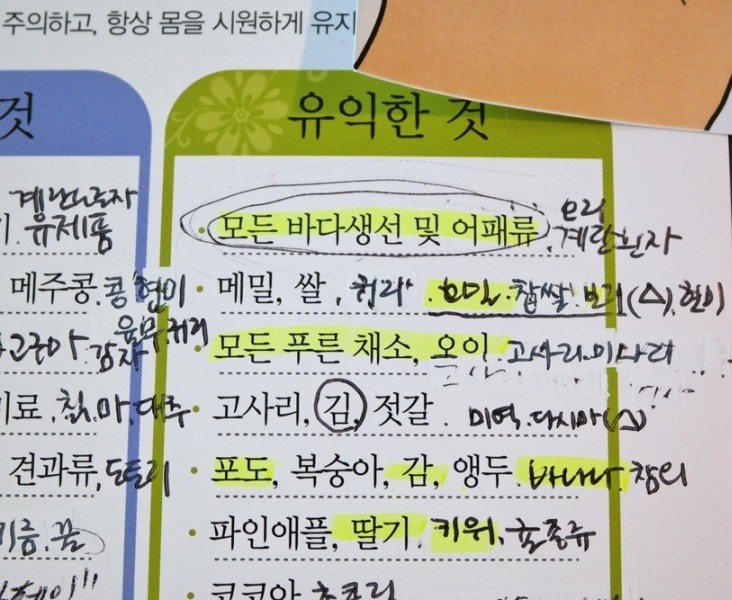 주의하고, 항상 몸을 시원하게 유지
것
계란노른자
유제품
메주콩. 콩. 현미
율무. 귀리
고구마. 감자
료. 칡. 마. 대추
견과류, 도토리
기름. 꿀
유익한 것
• 모든 바다생선 및 어패류. 오리
계란흰자
• 메밀, 쌀, 호밀. 찹쌀. 보리(△). 현미
• 모든 푸른 채소, 오이. 고사리. 미나리
• 고사리, 김, 젓갈. 미역. 다시마(△)
• 포도, 복숭아, 감, 앵두 바나나. 참외
• 파인애플, 딸기, 키위,
• 코코아